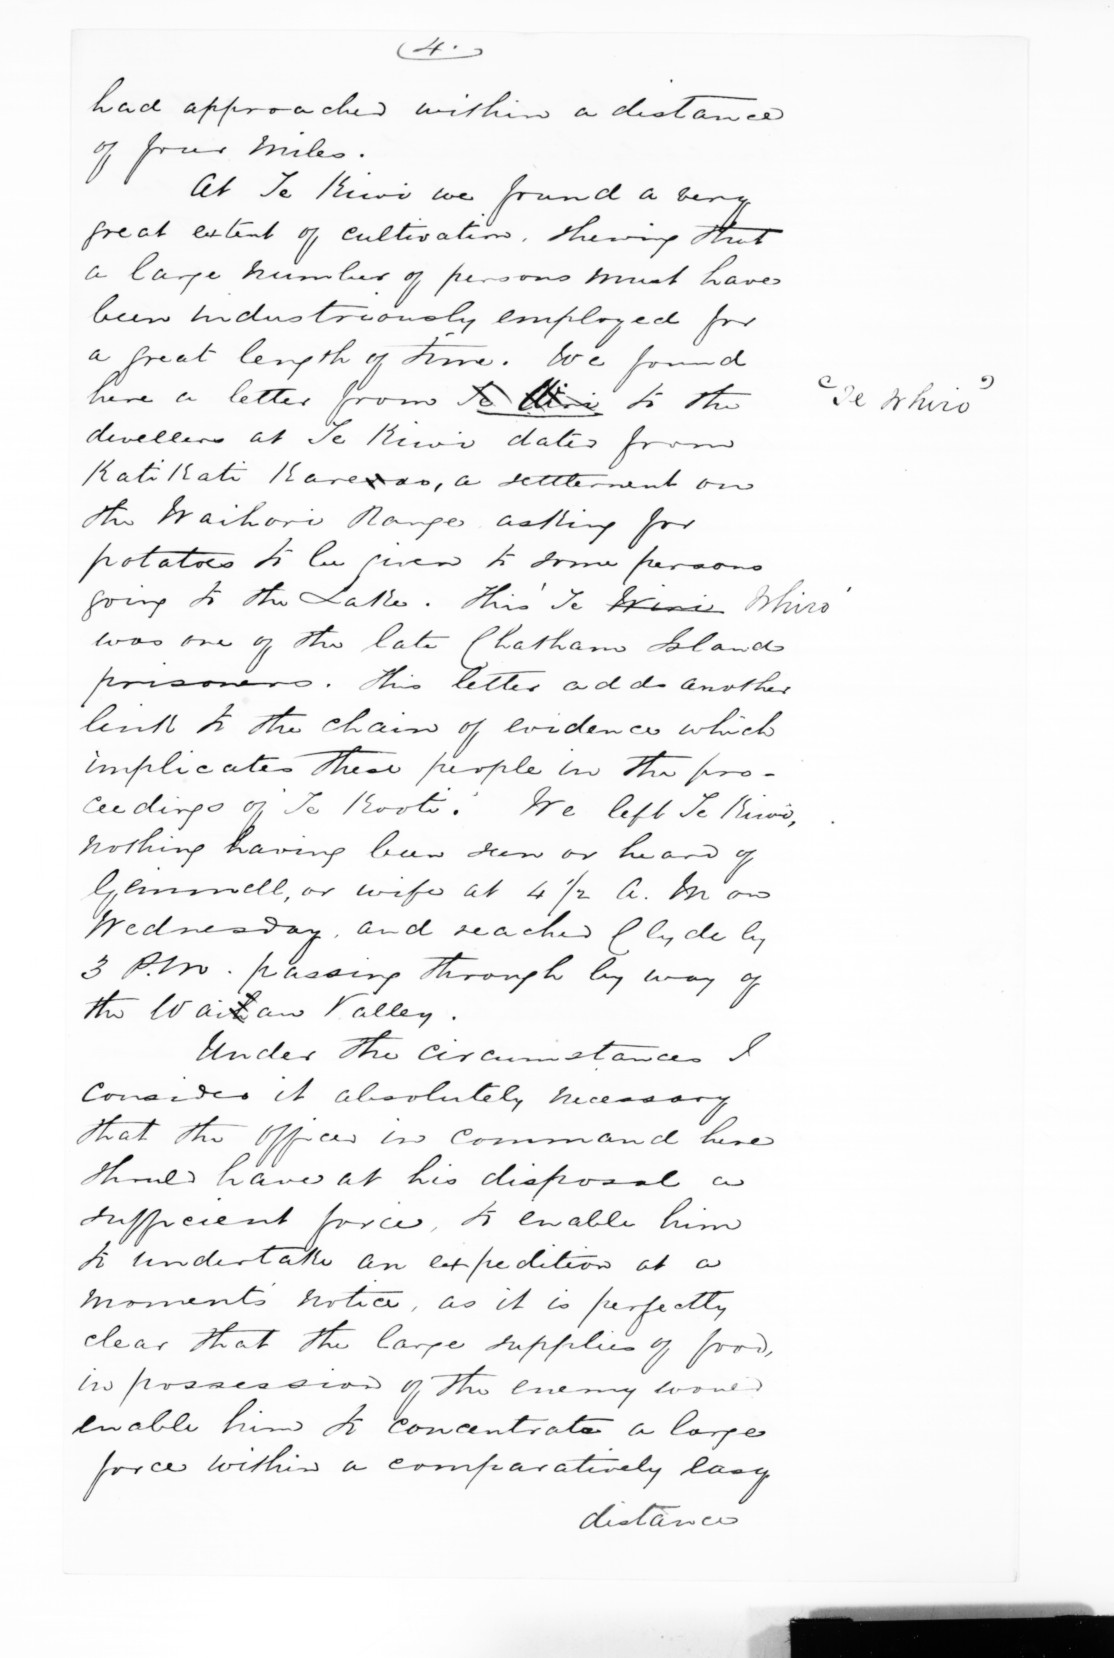 (4.)
had approached within a distance
of four miles.
At Te Kiwi we found a very
great extent of cultivation, shewing that
a large number of persons must have
been industriously employed for
a great length of time. We found
here a letter from Te to the "Te Whiro"
dwellers at Te Kiwi dated from
Kati Kati a settlement on
the Waihori Range asking for
potatoes to be given to some persons
going to the Lake. This 'Te Wini Whiro'
was one of the late Chatham Island
prisoners. This letter adds another
link to the chain of evidence which
implicates these people in the pro-
ceedings of 'Te Kooti.' We left Te Kiwi,
nothing having been seen or heard of
Gemmell, or wife at 4 1/2 A. M on
Wednesday, and reached Clyde by
3 P.M. passing through by way of
the Valley.
Under the circumstances I
consider it absolutely necessary
that the officer in command here
should have at his disposal a
sufficient force, to enable him
to undertake an expedition at a
moment's notice, as it is perfectly
clear that the large supplies of food,
in possession of the enemy would
enable him to concentrate a large
force within a comparatively easy
distance